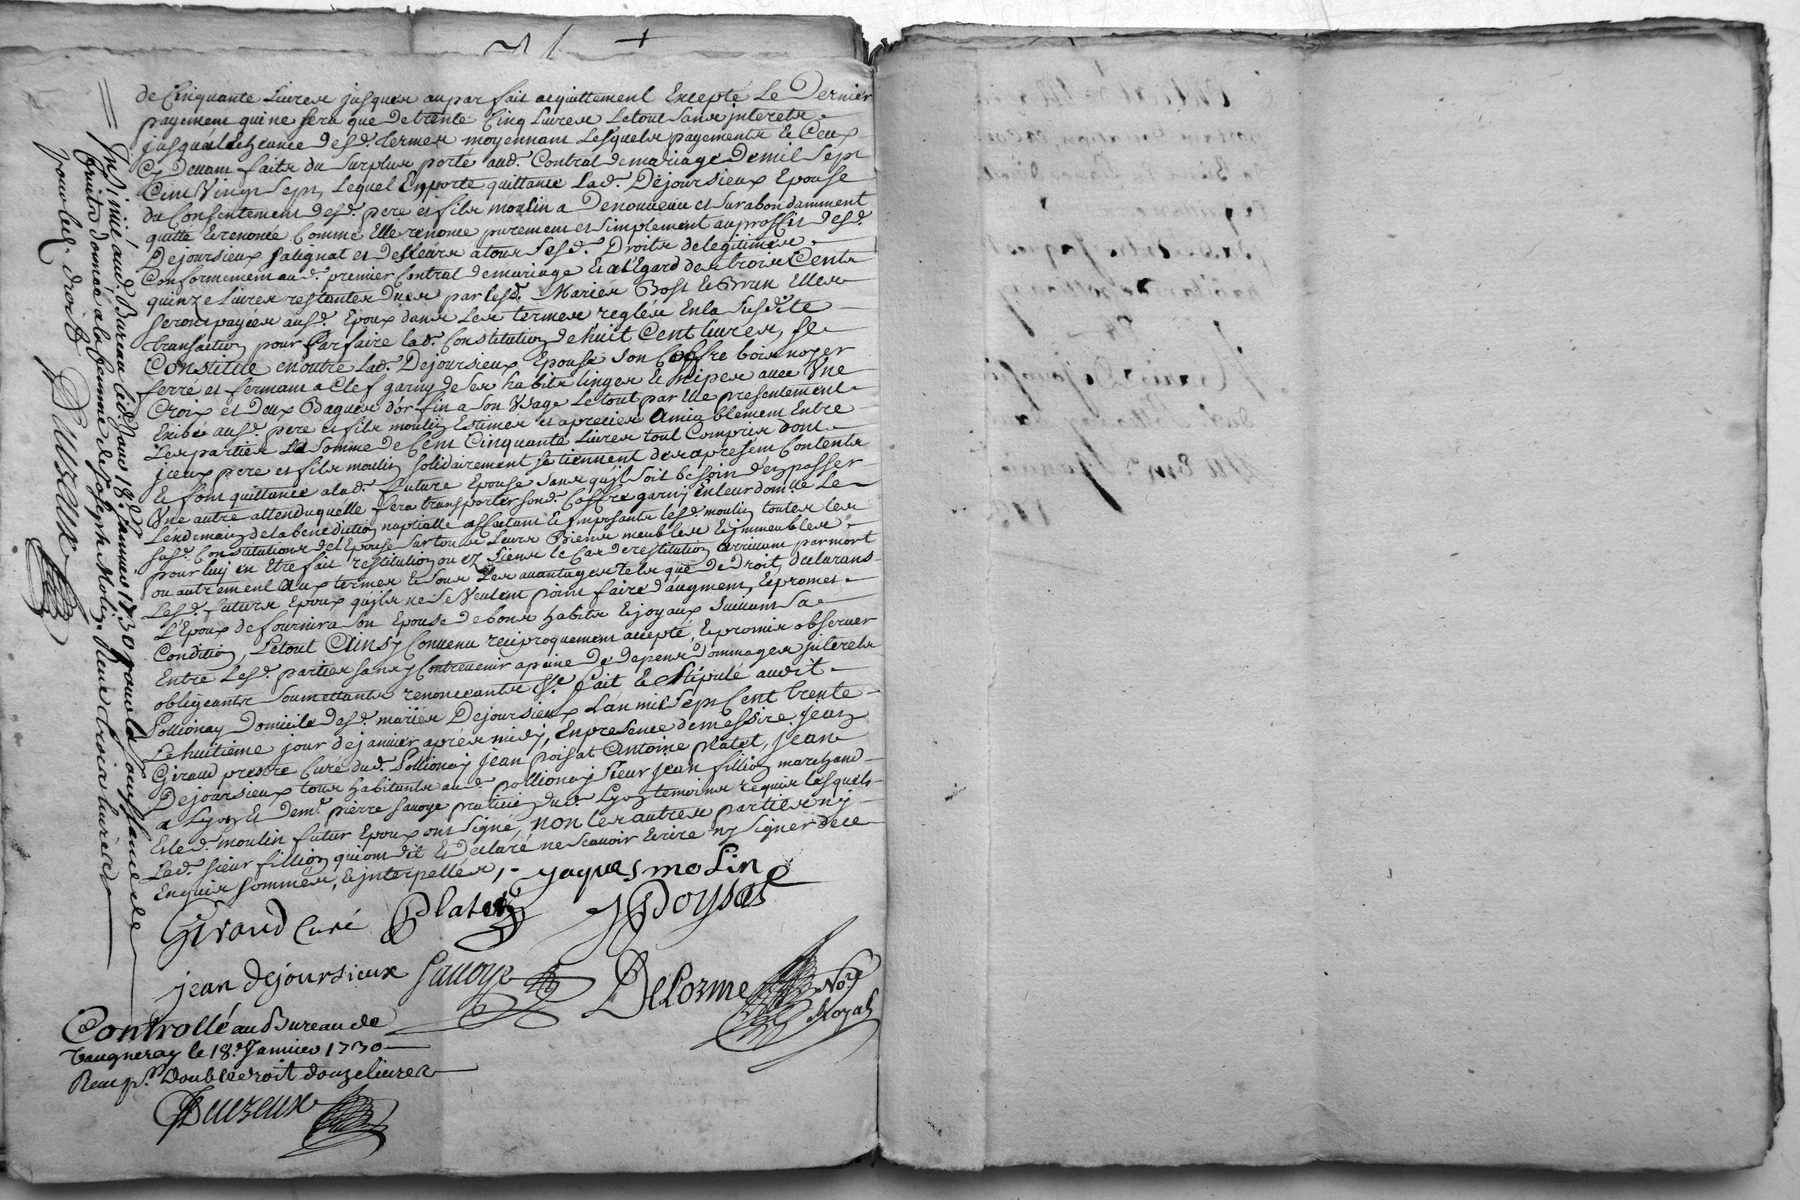 de Cinquante Livres jusques au parfait acquittement Excepté Le Dernier
payement qui ne sera que de trente Cinq Livres Le tout sans jnterets
jusqu'a l'echeance desd. termes moyennant Lesquels payements & Ceux
Cy Devant faits du surplus porté aud. Contrat de mariage De mil sept
Cent Vingt sept Lequel Emporte quittance Lad. Dejoursieux Epouse
du Consentement desd. pere et fils moulin a Denouveau et surabondamment
quitté & renoncé Comme Elle renonce purement et simplement au proffit desd.
Dejoursieux et a tous sesd. Droits de legitimes
Conformement aud. premier Contrat de mariage Et a l'Egard des trois Cents
quinze Livres restantes Dues par lesd. Mariés Bost & Brun Elles
seront payées ausd. Epoux dans Les termes reglés En la susd.te
transaction pour parfaire lad. Constitution de huit Cent Livres, se
Constitue en outre Lad. Dejoursieux Epouse son Coffre bois noyer
ferré et fermant a Clef garny de ses habits linges & Nipes avec Une
Croix et Deux Bagues d'or fin a son Usage Le tout par Elle presentement
Exibé ausd. pere et fils moulin Estimés et apreciés Amiablement Entre
Les parties La Somme de Cent Cinquante Livres tout Compris dont
jceux pere et fils moulin solidairement se tiennent des apresent Contents
& font quittance a lad. future Epouse sans qu'il soit besoin d'en passer
Une autre attendu qu'elle fera transporter sond. Coffre garny En leur dom.le Le
Lendemain de la benediction nuptialle affectant & Imposants Lesd. moulin toutes les
susd. Constitutions de l'Epouse Sur tous Leurs Biens meubles & jmmeubles
pour luy en Etre fait restitution ou ez siens le Cas de restitution arrivant par mort
ou autrement Aux termes & sous Les avantages tels que De Droit, declarans
Lesd. futurs Epoux qu'ils ne se Veulent point faire d'augment, & promet
L'Epoux de fournir a son Epouse de bons habits & joyaux suivant sa
Condition, Le tout Ainsy Convenu reciproquement accepté, & promis observer
Entre Lesd. parties sans y Contrevenir a peine De depens Dommages jnterets
obligeants soumettants renonceants &c. fait & stipulé audit
Pollionay Domicile desd. mariés Dejoursieux L'an mil sept Cent trente
Le huitieme jour de janvier après midy, En presence de messire Jean
Giraud prestre Curé dud. Pollionay Jean Poisat Antoine Platet, Jean
Dejoursieux tous habitants aud. Pollionay Sieur Jean fillion marchand
a Lyon Et Dem.r pierre Savoye praticien dud. Lyon temoins requis lesquels
& led. moulin futur Epoux ont signé, non les autres parties ny
Led. sieur fillion qui ont dit & Declaré ne sçavoir Ecrire ny signer de ce
Enquis sommés, & jnterpellés,
yaques molin
Giraud Curé
Platet
J Poysat
jean dejoursieux
Savoye
DeLorme No.re Royal
Controllé au Bureau de
Vaugneray le 18e Janvier 1730
Receu p.r Double droit douze livres
Duvzeux
Insinué aud. Bureau led. jour 18e Janvier 1730 pour la
donnée a la femme de Joseph Molin
pour les droits
Duvzeux